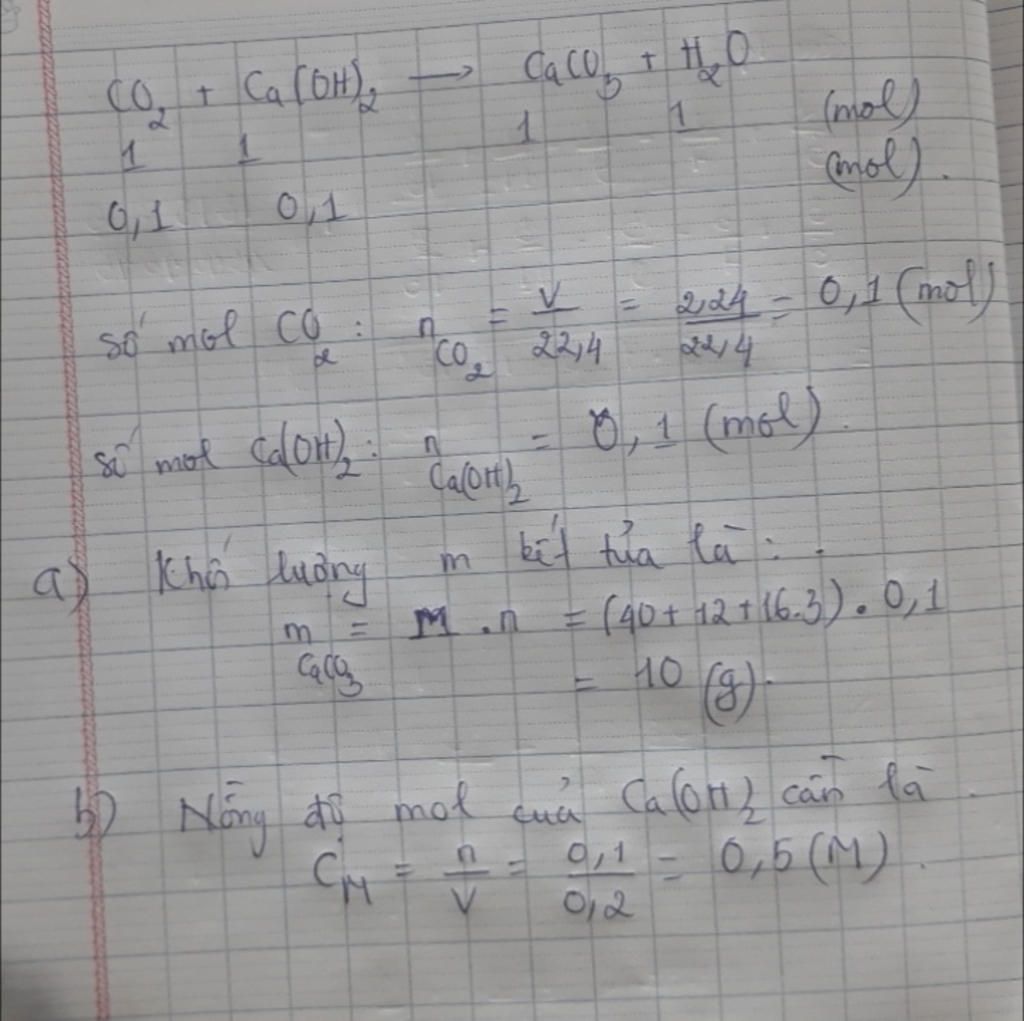 CO₂ + Ca(OH)₂ → CaCO₃ + H₂O
1 1 1 1 (mol)
0,1 0,1 (mol).
số mol CO₂ : n CO₂ = V/22,4 = 2,24/22,4 = 0,1 (mol)
số mol Ca(OH)₂ : n Ca(OH)₂ = 0,1 (mol).
a) Khối lượng m kết tủa là :
m CaCO₃ = M . n = (40 + 12 + 16.3) . 0,1
= 10 (g).
b) Nồng độ mol của Ca(OH)₂ cần là .
C_M = n/V = 0,1/0,2 = 0,5 (M) .